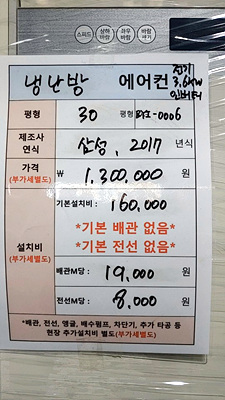 스피드 상하바람 좌우바람 바람세기
냉난방 에어컨 전기 3.6kw 인버터
평형 30 평형
제조사 연식 삼성, 2017 년식
가격 (부가세별도) ₩ 1,300,000 원
설치비 (부가세별도)
기본설치비 : 160,000
*기본 배관 없음*
*기본 전선 없음*
배관M당 : 19,000 원
전선M당 : 8,000 원
*배관, 전선, 앵글, 배수펌프, 차단기, 추가 타공 등
현장 추가설치비 별도(부가세별도)